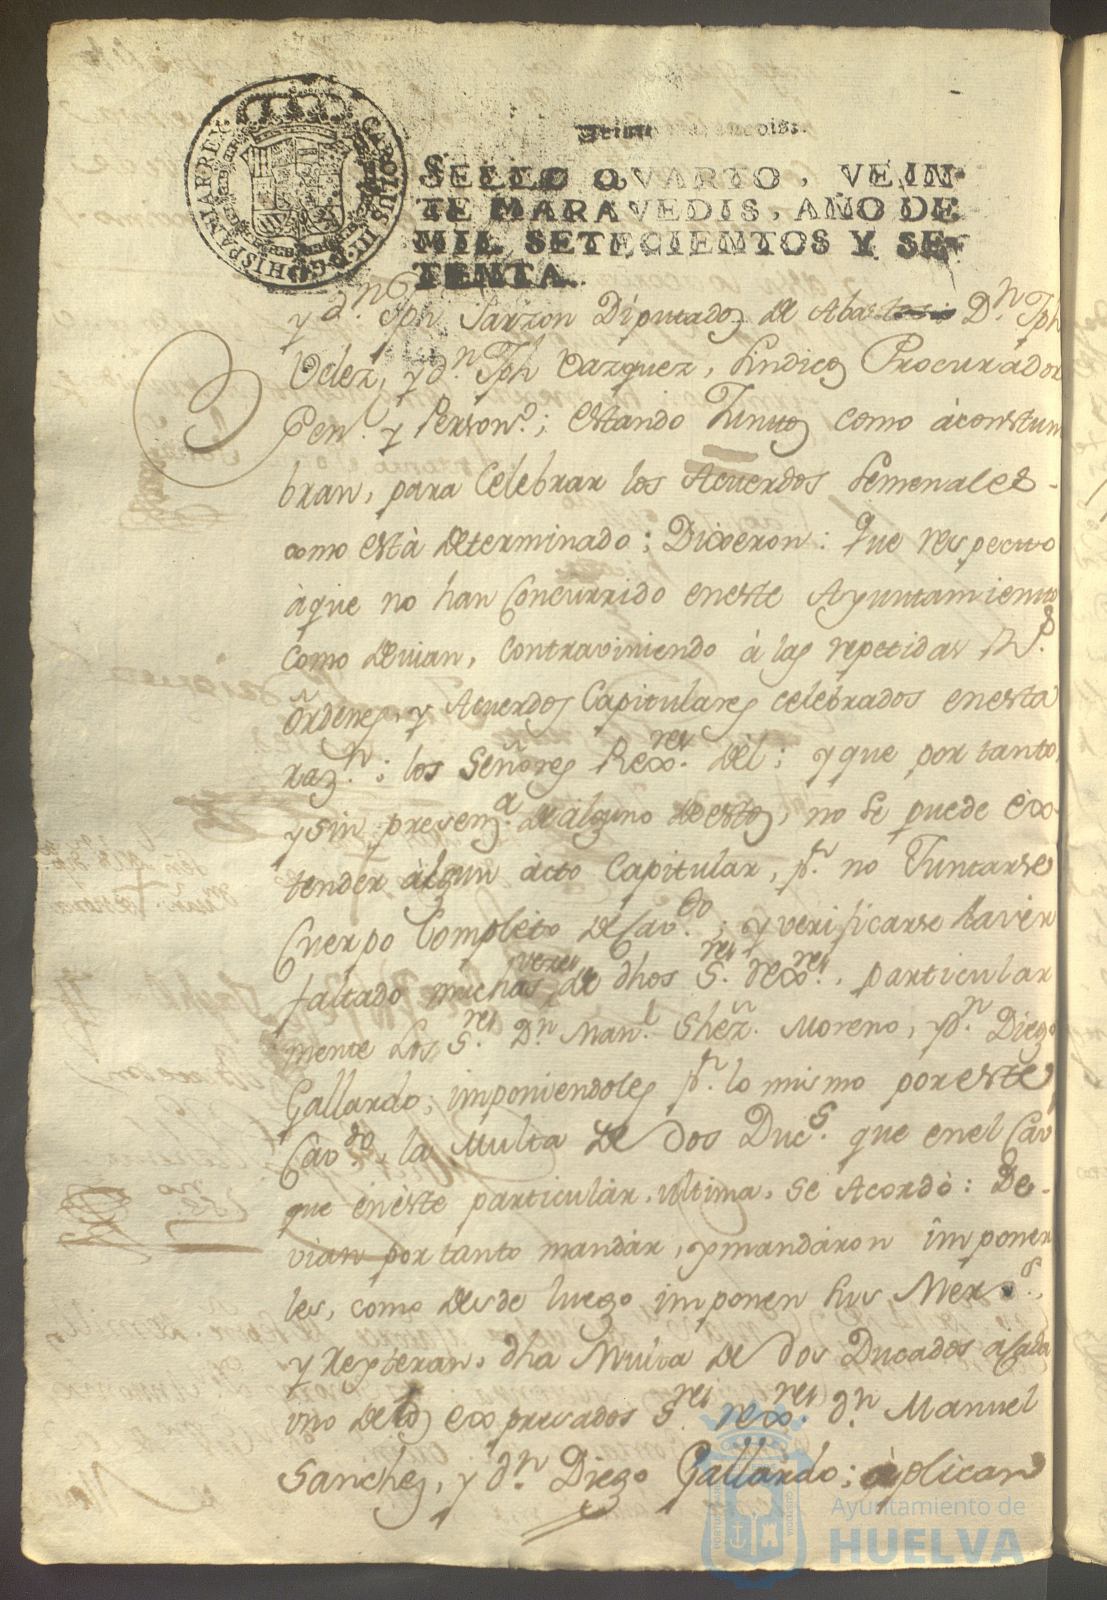 CAROLUS III. D. G. HISPANIAR. REX.
SELLO QVARTO, VEIN-
TE MARAVEDIS, AÑO DE
MIL SETECIENTOS Y SE-
TENTA.
y dn Jph Garzon Diputados de Abastos Dn. Jph
Velez, y dn. Jph Vazquez, Sindicos Procurador
Genl. y Persono.; estando Juntos como àcostum
bran, para Celebrar los Acuerdos Semenales
como està determinado; Dixeron: Que respecto
àque no han Concurrido eneste Ayuntamiento
como devian, contraviniendo à las repetidas Rs.
Ordenes, y Acuerdos Capitulares celebrados enesta
razn.; los Señores Rexres. dèl; y que por tanto,
y sin presenza. de alguno destos, no se puede ex-
tender àlgun àcto Capitular, pr. no Juntarse
Cuerpo Completo de Cavdo.; y verificarse haver
faltado muchas veces de dhos Sres. rexres., particular
mente Los Sres. Dn. Manl. Shez. Moreno, y dn. Diego
Gallardo; imponiendoles pr. lo mismo por este
Cavdo. la Multa de dos Ducs. que enel Cav
que èneste particular, ultima. se Acordò: De-
vian por tanto mandar, y mandaron imponer
les, como desde luego imponen sus Merds.,
y Repteran, dha Multa de dos Ducados a Cada
uno de los expresados Sres. rexres. dn. Manuel
Sanchez, y dn. Diego Gallardo; àplicar
Ayuntamiento de
HUELVA